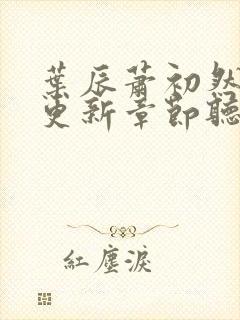 葉辰蕭初然
更新章節聽
紅塵淚